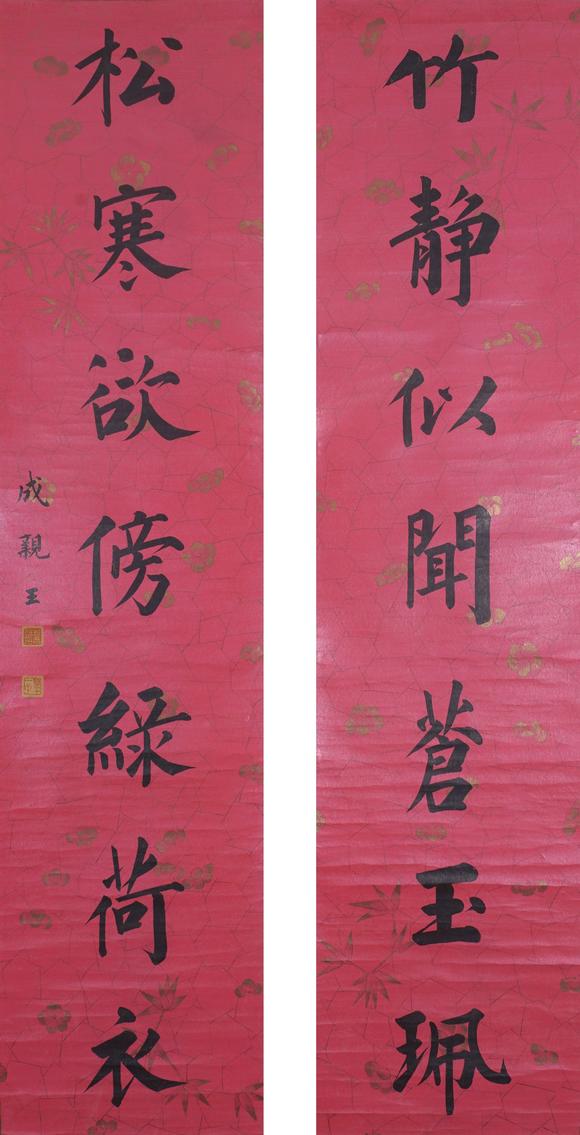 竹静似聞蒼玉珮
松寒欲傍緑荷衣
成親王